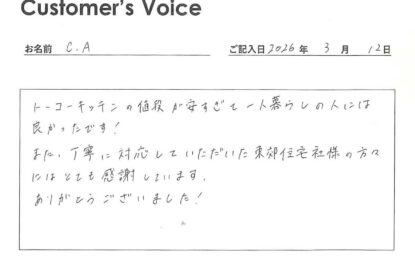 Customer's Voice
お名前 C.A ご記入日2026年 3月 12日
トーコーキッチンの値段が安すぎて一人暮らしの人には
良かったです!
また、丁寧に対応していただいた東郊住宅社様の方々
にはとても感謝しています。
ありがとうございました!